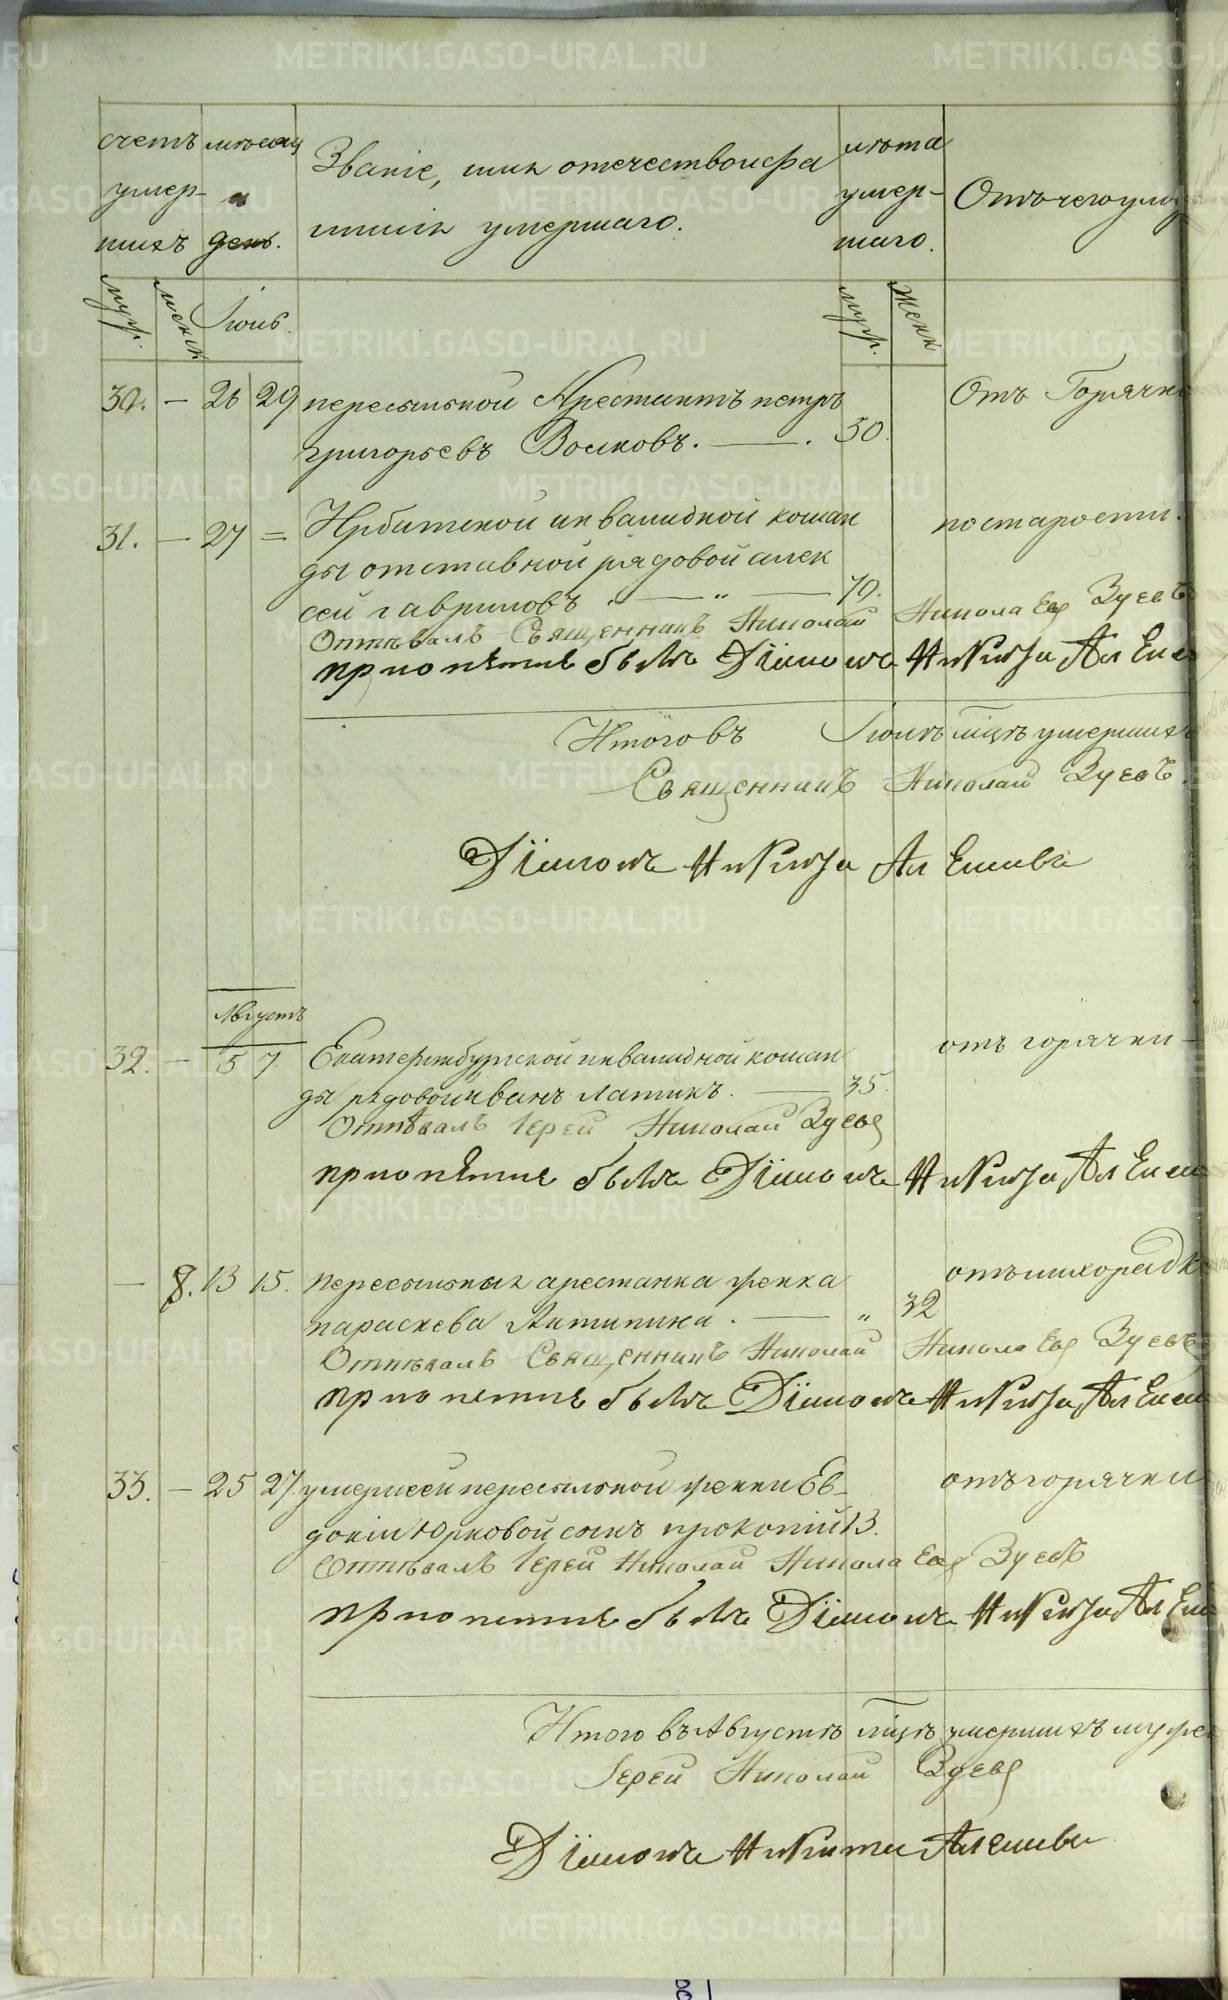 счетъ
умер-
шихъ
мѣсяц
и
день.
Званіе, имя отечество и фа
милія умершаго.
лѣта
умер-
шаго.
Отъ чего ум
муж.
женск
Іюль.
муж.
женк
30. — 26 29 пересыльной Арестантъ петръ
григорьевъ Волковъ. — . 50.
Отъ Горячк
31. — 27 = Ирбитской инвалидной коман
ды отставной рядовой алек
сей гавриловъ . — „ — 70.
по старости.
Отпѣвалъ Священникъ Николай Николаевъ Зуевъ
при попѣтіе былъ Дїяконъ Никита
Итого въ Іюлѣ мцѣ умершихъ
Священникъ Николай Зуевъ.
Дїяконъ Никита
Августъ
32. — 5 7. Екатеринбургской инвалидной коман
ды рядовой иванъ Лапинъ. — 35.
отъ горячки —
Отпѣвалъ Іерей Николай Зуевъ
при попѣтіе былъ Дїяконъ Никита
— 8. 13 15. пересыльная арестанка женка
параскева Антипина . — „ 32
отъ лихорадк
Отпѣвалъ Священникъ Николай Николаевъ Зуевъ
при попетіе былъ Дїяконъ Никита
33. — 25 27. умершей пересыльной женки Ев-
докіи Юрковой сынъ прокопій 13.
отъ горячки
Отпѣвалъ Іерей Николай Николаевъ Зуевъ
при попетіе былъ Дїяконъ Никита
Итого въ Августѣ мцѣ умершихъ муже
Іерей Николай Зуевъ
Дїяконъ Никита
METRIKI.GASO-URAL.RU